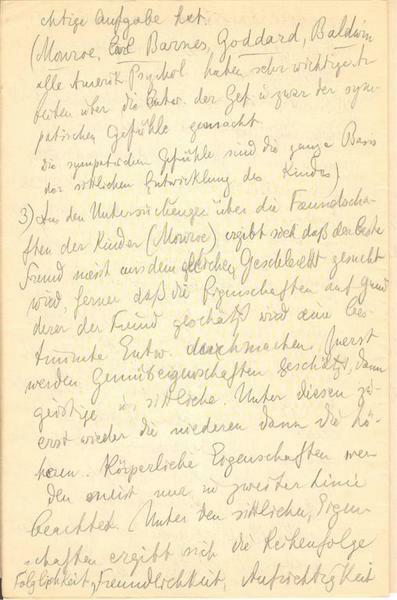 chtige Aufgabe hat.
(Monroe, Earl Barnes, Goddard, Baldwin
alle Amerik. Psychol. haben sehr wichtige Ar
beiten über die Entw. der Gef. u. zwar der sym
patischen Gefühle gemacht.
Die sympatischen Gefühle sind die ganze Basis
der sittlichen Entwicklung des Kindes)
3) Aus den Untersuchungen über die Freundscha-
ften der Kinder (Monroe) ergibt sich daß der beste
Freund meist aus dem gleichen Geschlecht gesucht
wird, ferner daß die Eigenschaften auf Grund
derer der Freund geschätzt wird eine bes-
timmte Entw. durchmachen. Zuerst
werden Gemütseigenschaften geschätzt, dann
geistige u. sittliche. Unter diesen zu-
erst wieder die niederen dann die hö-
heren. Körperliche Eigenschaften wer-
den meist nur in zweiter Linie
beachtet. Unter den sittlichen Eigen-
schaften ergibt sich die Reihenfolge
Folglichkeit, Freundlichkeit, Aufrichtigkeit